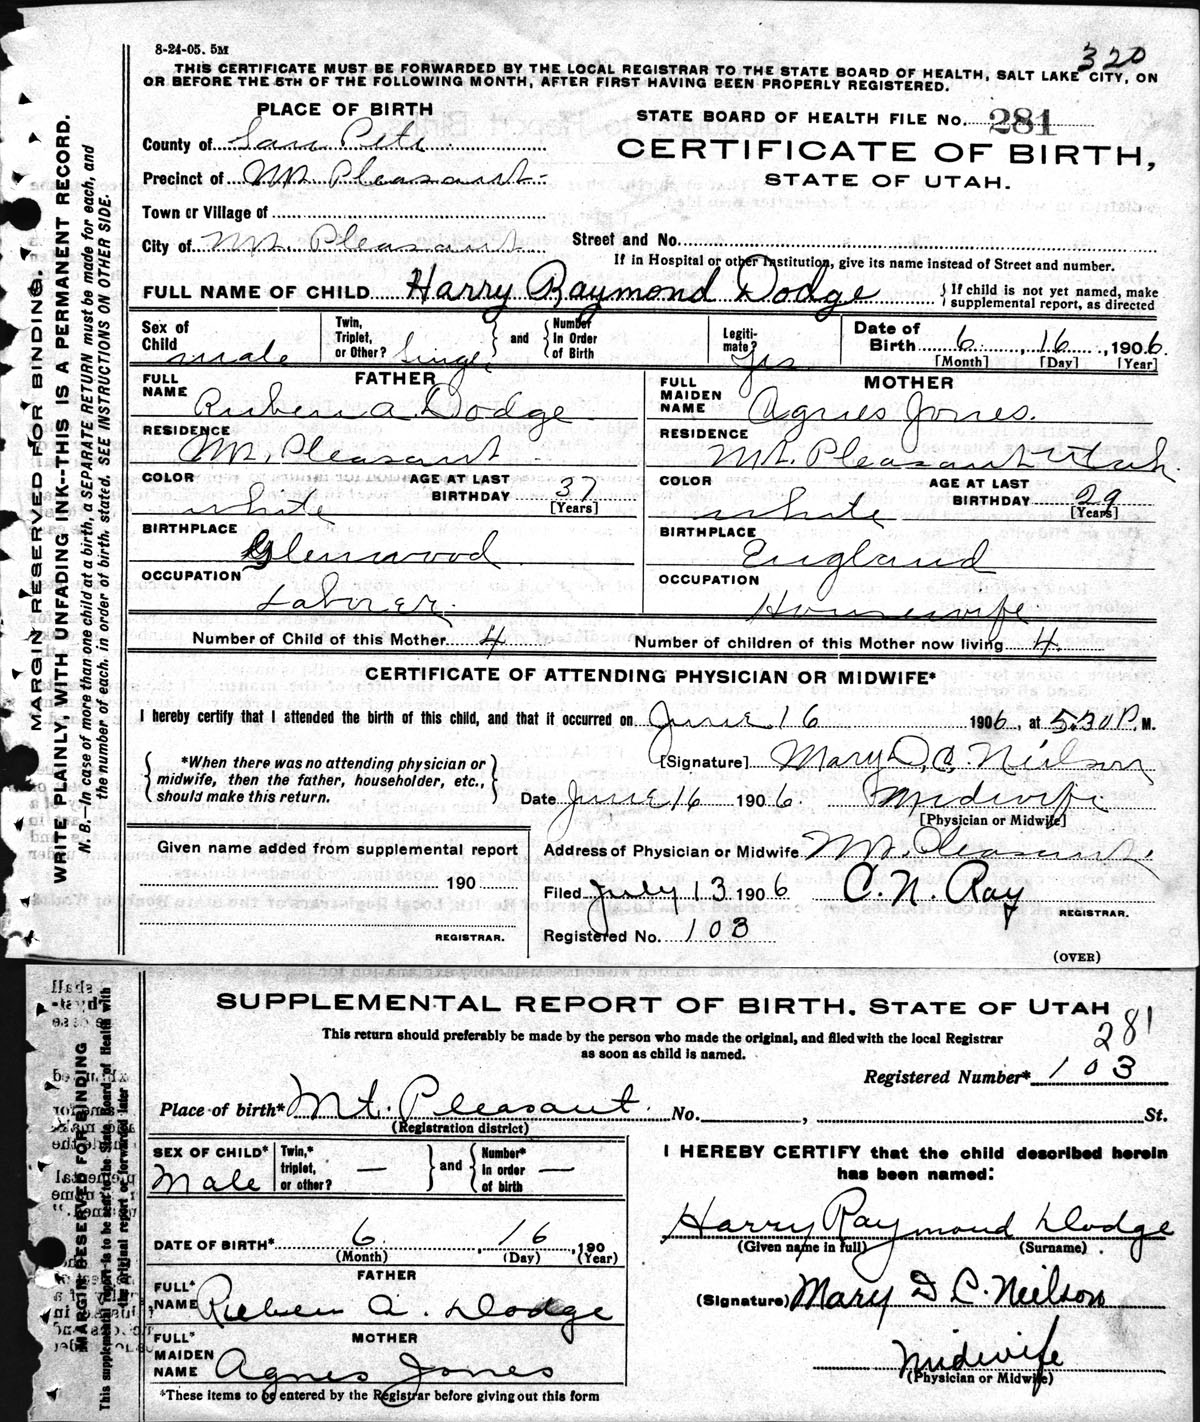 8-24-05. 5M
320
THIS CERTIFICATE MUST BE FORWARDED BY THE LOCAL REGISTRAR TO THE STATE BOARD OF HEALTH, SALT LAKE CITY, ON
OR BEFORE THE 5TH OF THE FOLLOWING MONTH, AFTER FIRST HAVING BEEN PROPERLY REGISTERED.
PLACE OF BIRTH
County of San Pete
Precinct of Mt Pleasant
Town or Village of
City of Mt. Pleasant
STATE BOARD OF HEALTH FILE No. 281
CERTIFICATE OF BIRTH,
STATE OF UTAH.
Street and No.
If in Hospital or other Institution, give its name instead of Street and number.
FULL NAME OF CHILD Harry Raymond Dodge { If child is not yet named, make
supplemental report, as directed
Sex of Child male
Twin, Triplet, or Other? Single } and { Number In Order of Birth
Legiti-mate? Yes
Date of Birth 6, 16, 1906.
[Month] [Day] [Year]
FATHER
FULL NAME Ruben A. Dodge
RESIDENCE Mt. Pleasant
COLOR white
AGE AT LAST BIRTHDAY 37
[Years]
BIRTHPLACE Glenwood
OCCUPATION Laborer.
MOTHER
FULL MAIDEN NAME Agnes Jones.
RESIDENCE Mt. Pleasant Utah.
COLOR white
AGE AT LAST BIRTHDAY 29
[Years]
BIRTHPLACE England
OCCUPATION Housewife
Number of Child of this Mother 4 Number of children of this Mother now living 4.
CERTIFICATE OF ATTENDING PHYSICIAN OR MIDWIFE*
I hereby certify that I attended the birth of this child, and that it occurred on June 16 1906, at 5.30 P. M.
{ *When there was no attending physician or
midwife, then the father, householder, etc.,
should make this return. }
[Signature] Mary D. C. Neilson
Date June 16 1906. Midwife
[Physician or Midwife]
Given name added from supplemental report
190
REGISTRAR.
Address of Physician or Midwife Mt. Pleasant
Filed July 13 1906 C. N. Ray
REGISTRAR.
Registered No. 103
(OVER)
MARGIN RESERVED FOR BINDING.
WRITE PLAINLY, WITH UNFADING INK--THIS IS A PERMANENT RECORD.
N. B.—In case of more than one child at a birth, a SEPARATE RETURN must be made for each, and
the number of each, in order of birth, stated. SEE INSTRUCTIONS ON OTHER SIDE.
SUPPLEMENTAL REPORT OF BIRTH, STATE OF UTAH
281
This return should preferably be made by the person who made the original, and filed with the local Registrar
as soon as child is named.
Registered Number* 103
Place of birth* Mt. Pleasant. No. , St.
(Registration district)
SEX OF CHILD* Male
Twin,* triplet, or other? — } and { Number* in order of birth —
DATE OF BIRTH* 6, 16, 190
(Month) (Day) (Year)
FATHER
FULL* NAME Rieben A. Dodge
MOTHER
FULL* MAIDEN NAME Agnes Jones
*These items to be entered by the Registrar before giving out this form
I HEREBY CERTIFY that the child described herein
has been named:
Harry Raymond Dodge
(Given name in full) (Surname)
(Signature) Mary D C. Neilson
Midwife
(Physician or Midwife)
MARGIN RESERVED FOR BINDING
This supplemental report is to be sent to the State Board of Health with
the original report or forwarded later